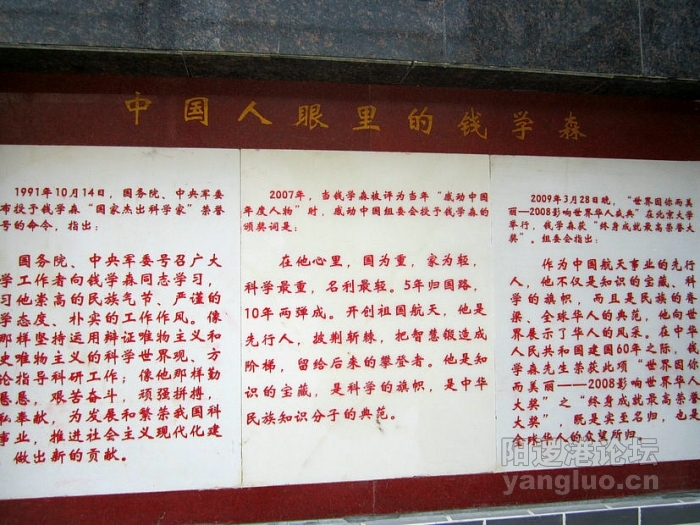 中国人眼里的钱学森
1991年10月14日，国务院、中央军委
布授于钱学森“国家杰出科学家”荣誉
号的命令，指出：
国务院、中央军委号召广大
学工作者向钱学森同志学习，
习他崇高的民族气节、严谨的
学态度、朴实的工作作风。像
那样坚持运用辩证唯物主义和
史唯物主义的科学世界观、方
论指导科研工作；像他那样勤
恳恳，艰苦奋斗，顽强拼搏，
私奉献，为发展和繁荣我国科
事业，推进社会主义现代化建
做出新的贡献。
2007年，当钱学森被评为当年“感动中国
年度人物”时，感动中国组委会授于钱学森的
颁奖词是：
在他心里，国为重，家为轻，
科学最重，名利最轻。5年归国路，
10年两弹成。开创祖国航天，他是
先行人，披荆斩棘，把智慧锻造成
阶梯，留给后来的攀登者。他是知
识的宝藏，是科学的旗帜，是中华
民族知识分子的典范。
2009年3月28日晚，“世界因你而美
丽—2008影响世界华人盛典”在北京大学
举行，钱学森获“终身成就最高荣誉大
奖”。组委会指出：
作为中国航天事业的先行
人，他不仅是知识的宝藏、科
学的旗帜，而且是民族的脊
梁、全球华人的典范，他向世
界展示了华人的风采。在中华
人民共和国建国60年之际，钱
学森先生荣获此项“世界因你
而美丽——2008影响世界华人
大奖”之“终身成就最高荣誉
大奖”，既是实至名归，也是
全球华人的众望所归。
阳逻港论坛
yangluo.cn